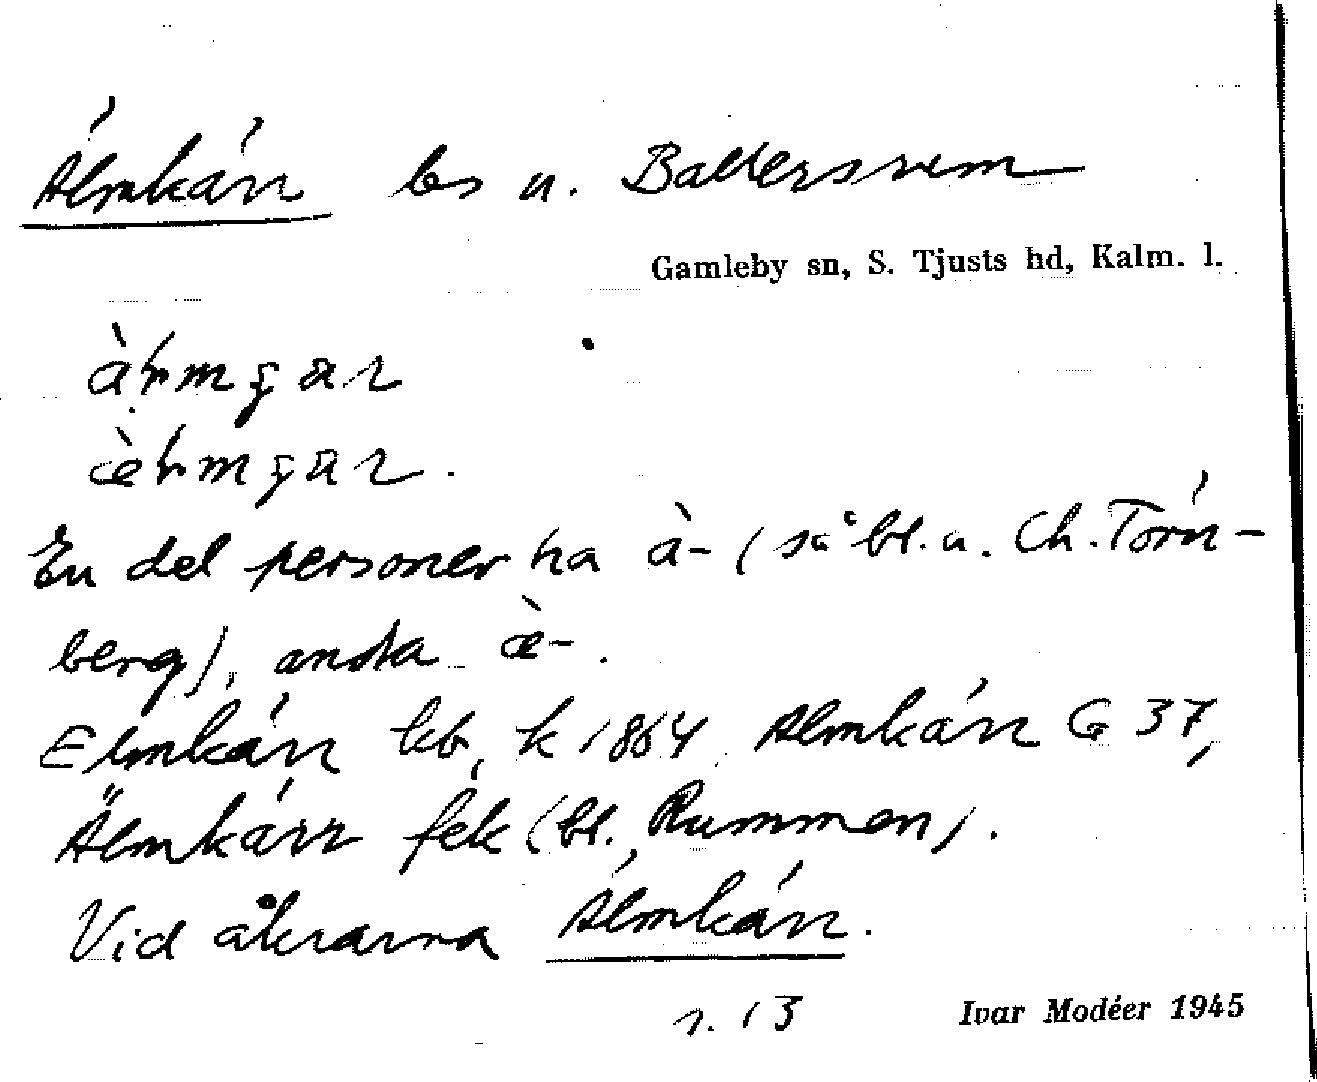 Älmkärr bs u. Baltersrum
Gamleby sn, S. Tjusts hd, Kalm. l.
En del personer ha à- (så bl. a. Ch. Törn-
berg), andra æ̀-.
Elmkärr kb, k 1864 Almkärr G 37,
Älmkärr fek (bl., Rummen).
Vid åkrarna Älmkärr.
s. 13
Ivar Modéer 1945